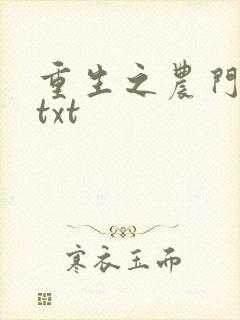 重生之農門
txt
寒衣玉而